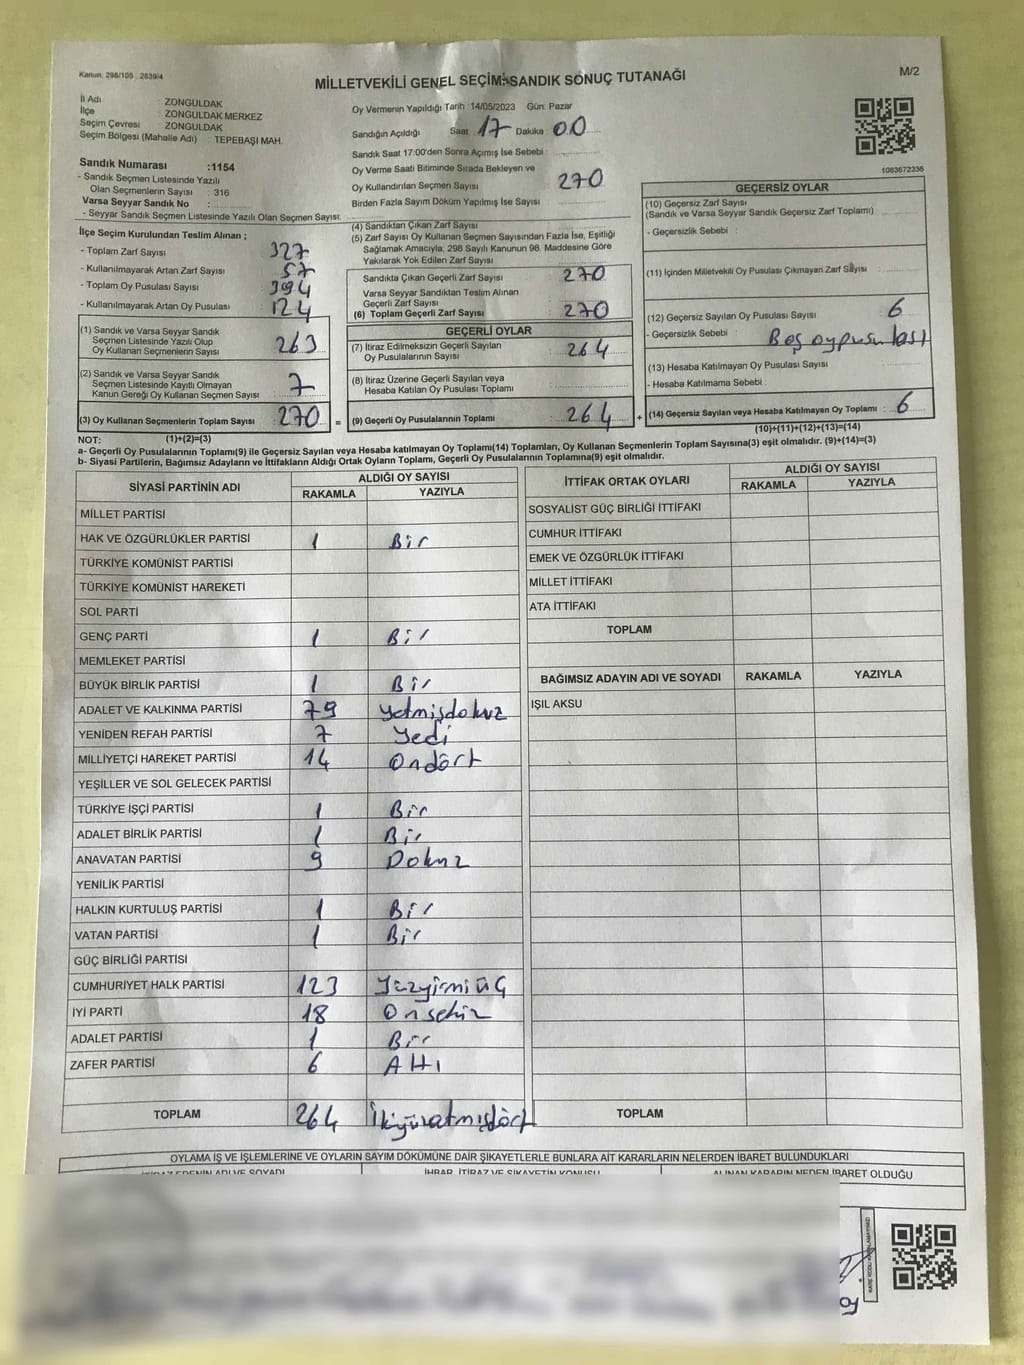 Kanun, 298/105 , 2839/4
MİLLETVEKİLİ GENEL SEÇİMİ SANDIK SONUÇ TUTANAĞI
M/2
İl Adı : ZONGULDAK
İlçe : ZONGULDAK MERKEZ
Seçim Çevresi : ZONGULDAK
Seçim Bölgesi (Mahalle Adı) : TEPEBAŞI MAH.
Sandık Numarası :1154
- Sandık Seçmen Listesinde Yazılı
Olan Seçmenlerin Sayısı : 316
Varsa Seyyar Sandık No :
- Seyyar Sandık Seçmen Listesinde Yazılı Olan Seçmen Sayısı:
Oy Vermenin Yapıldığı Tarih :14/05/2023 Gün: Pazar
Sandığın Açıldığı Saat 17 Dakika 00
Sandık Saat 17:00'den Sonra Açımış İse Sebebi :
Oy Verme Saati Bitiminde Sırada Bekleyen ve
Oy Kullandırılan Seçmen Sayısı 270
Birden Fazla Sayım Döküm Yapılmış İse Sayısı :
1083672336
İlçe Seçim Kurulundan Teslim Alınan ;
- Toplam Zarf Sayısı 327
- Kullanılmayarak Artan Zarf Sayısı 57
- Toplam Oy Pusulası Sayısı 394
- Kullanılmayarak Artan Oy Pusulası 124
(1) Sandık ve Varsa Seyyar Sandık
Seçmen Listesinde Yazılı Olup
Oy Kullanan Seçmenlerin Sayısı 263
(2) Sandık ve Varsa Seyyar Sandık
Seçmen Listesinde Kayıtlı Olmayan
Kanun Gereği Oy Kullanan Seçmen Sayısı : 7
(3) Oy Kullanan Seçmenlerin Toplam Sayısı : 270 =
(4) Sandıktan Çıkan Zarf Sayısı
(5) Zarf Sayısı Oy Kullanan Seçmen Sayısından Fazla İse, Eşitliği
Sağlamak Amacıyla, 298 Sayılı Kanunun 98. Maddesine Göre
Yakılarak Yok Edilen Zarf Sayısı
Sandıkta Çıkan Geçerli Zarf Sayısı : 270
Varsa Seyyar Sandıktan Teslim Alınan
Geçerli Zarf Sayısı
(6) Toplam Geçerli Zarf Sayısı : 270
GEÇERLİ OYLAR
(7) İtiraz Edilmeksizin Geçerli Sayılan
Oy Pusulalarının Sayısı : 264
(8) İtiraz Üzerine Geçerli Sayılan veya
Hesaba Katılan Oy Pusulası Toplamı :
(9) Geçerli Oy Pusulalarının Toplamı : 264 +
GEÇERSİZ OYLAR
(10) Geçersiz Zarf Sayısı
(Sandık ve Varsa Seyyar Sandık Geçersiz Zarf Toplamı) :
- Geçersizlik Sebebi :
(11) İçinden Milletvekili Oy Pusulası Çıkmayan Zarf Sayısı :
(12) Geçersiz Sayılan Oy Pusulası Sayısı : 6
- Geçersizlik Sebebi : Boş oy pusulası
(13) Hesaba Katılmayan Oy Pusulası Sayısı :
- Hesaba Katılmama Sebebi :
(14) Geçersiz Sayılan veya Hesaba Katılmayan Oy Toplamı : 6
(10)+(11)+(12)+(13)=(14)
NOT: (1)+(2)=(3)
a- Geçerli Oy Pusulaların Toplamı(9) ile Geçersiz Sayılan veya Hesaba katılmayan Oy Toplamı(14) Toplamları, Oy Kullanan Seçmenlerin Toplam Sayısına(3) eşit olmalıdır. (9)+(14)=(3)
b- Siyasi Partilerin, Bağımsız Adayların ve İttifakların Aldığı Ortak Oyların Toplamı, Geçerli Oy Pusulalarının Toplamına(9) eşit olmalıdır.
SİYASİ PARTİNİN ADI ALDIĞI OY SAYISI
RAKAMLA YAZIYLA
MİLLET PARTİSİ
HAK VE ÖZGÜRLÜKLER PARTİSİ 1 Bir
TÜRKİYE KOMÜNİST PARTİSİ
TÜRKİYE KOMÜNİST HAREKETİ
SOL PARTİ
GENÇ PARTİ 1 Bir
MEMLEKET PARTİSİ
BÜYÜK BİRLİK PARTİSİ 1 Bir
ADALET VE KALKINMA PARTİSİ 79 yetmişdokuz
YENİDEN REFAH PARTİSİ 7 Yedi
MİLLİYETÇİ HAREKET PARTİSİ 14 Ondört
YEŞİLLER VE SOL GELECEK PARTİSİ
TÜRKİYE İŞÇİ PARTİSİ 1 Bir
ADALET BİRLİK PARTİSİ 1 Bir
ANAVATAN PARTİSİ 9 Dokuz
YENİLİK PARTİSİ
HALKIN KURTULUŞ PARTİSİ 1 Bir
VATAN PARTİSİ 1 Bir
GÜÇ BİRLİĞİ PARTİSİ
CUMHURİYET HALK PARTİSİ 123 Yüzyirmiüç
İYİ PARTİ 18 Onsekiz
ADALET PARTİSİ 1 Bir
ZAFER PARTİSİ 6 Altı
TOPLAM 264 İkiyüzatmışdört
İTTİFAK ORTAK OYLARI ALDIĞI OY SAYISI
RAKAMLA YAZIYLA
SOSYALIST GÜÇ BİRLİĞİ İTTİFAKI
CUMHUR İTTİFAKI
EMEK VE ÖZGÜRLÜK İTTİFAKI
MİLLET İTTİFAKI
ATA İTTİFAKI
TOPLAM
BAĞIMSIZ ADAYIN ADI VE SOYADI RAKAMLA YAZIYLA
IŞIL AKSU
TOPLAM
OYLAMA İŞ VE İŞLEMLERİNE VE OYLARIN SAYIM DÖKÜMÜNE DAİR ŞİKAYETLERLE BUNLARA AİT KARARLARIN NELERDEN İBARET BULUNDUKLARI
İTİRAZ EDENİN ADI VE SOYADI İHBAR, İTİRAZ VE ŞİKAYETİN KONUSU ALINAN KARARIN NEDEN İBARET OLDUĞU